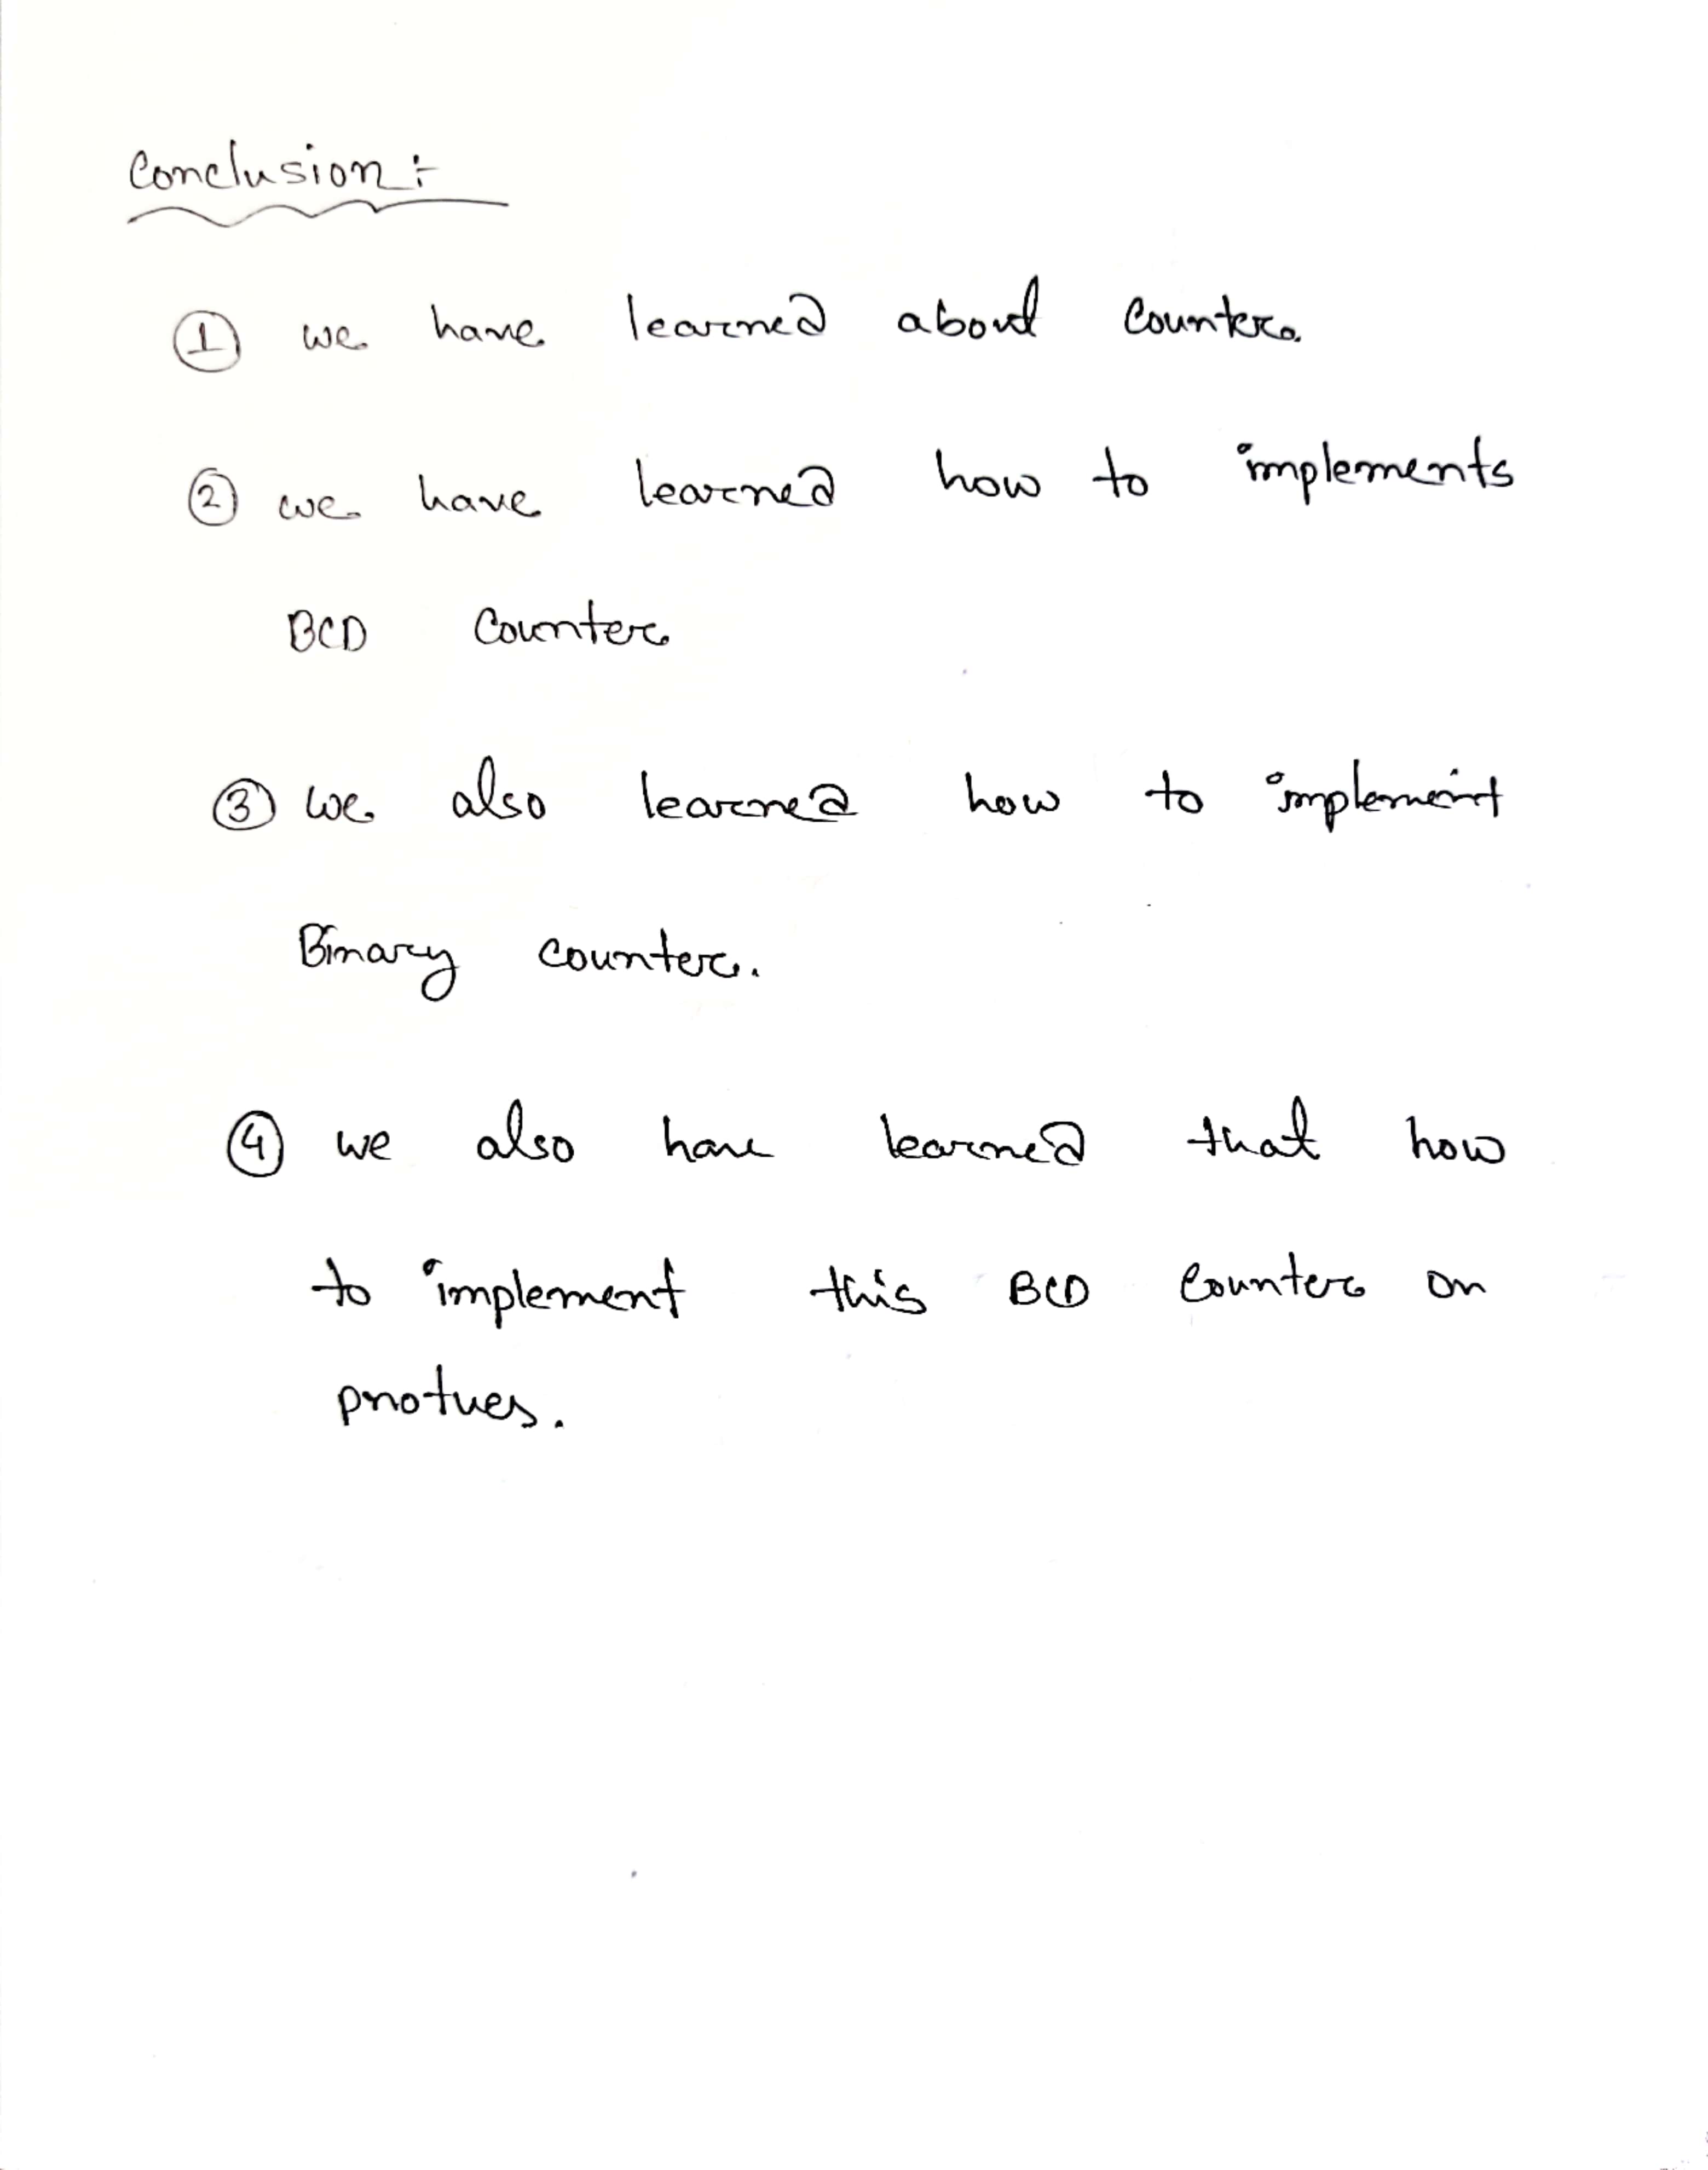 Conclusion:-
① we have learned about Counter.
② we have learned how to implements
BCD Counter
③ we also learned how to implement
Binary counter.
④ we also have learned that how
to implement this BCD Counter on
protues.